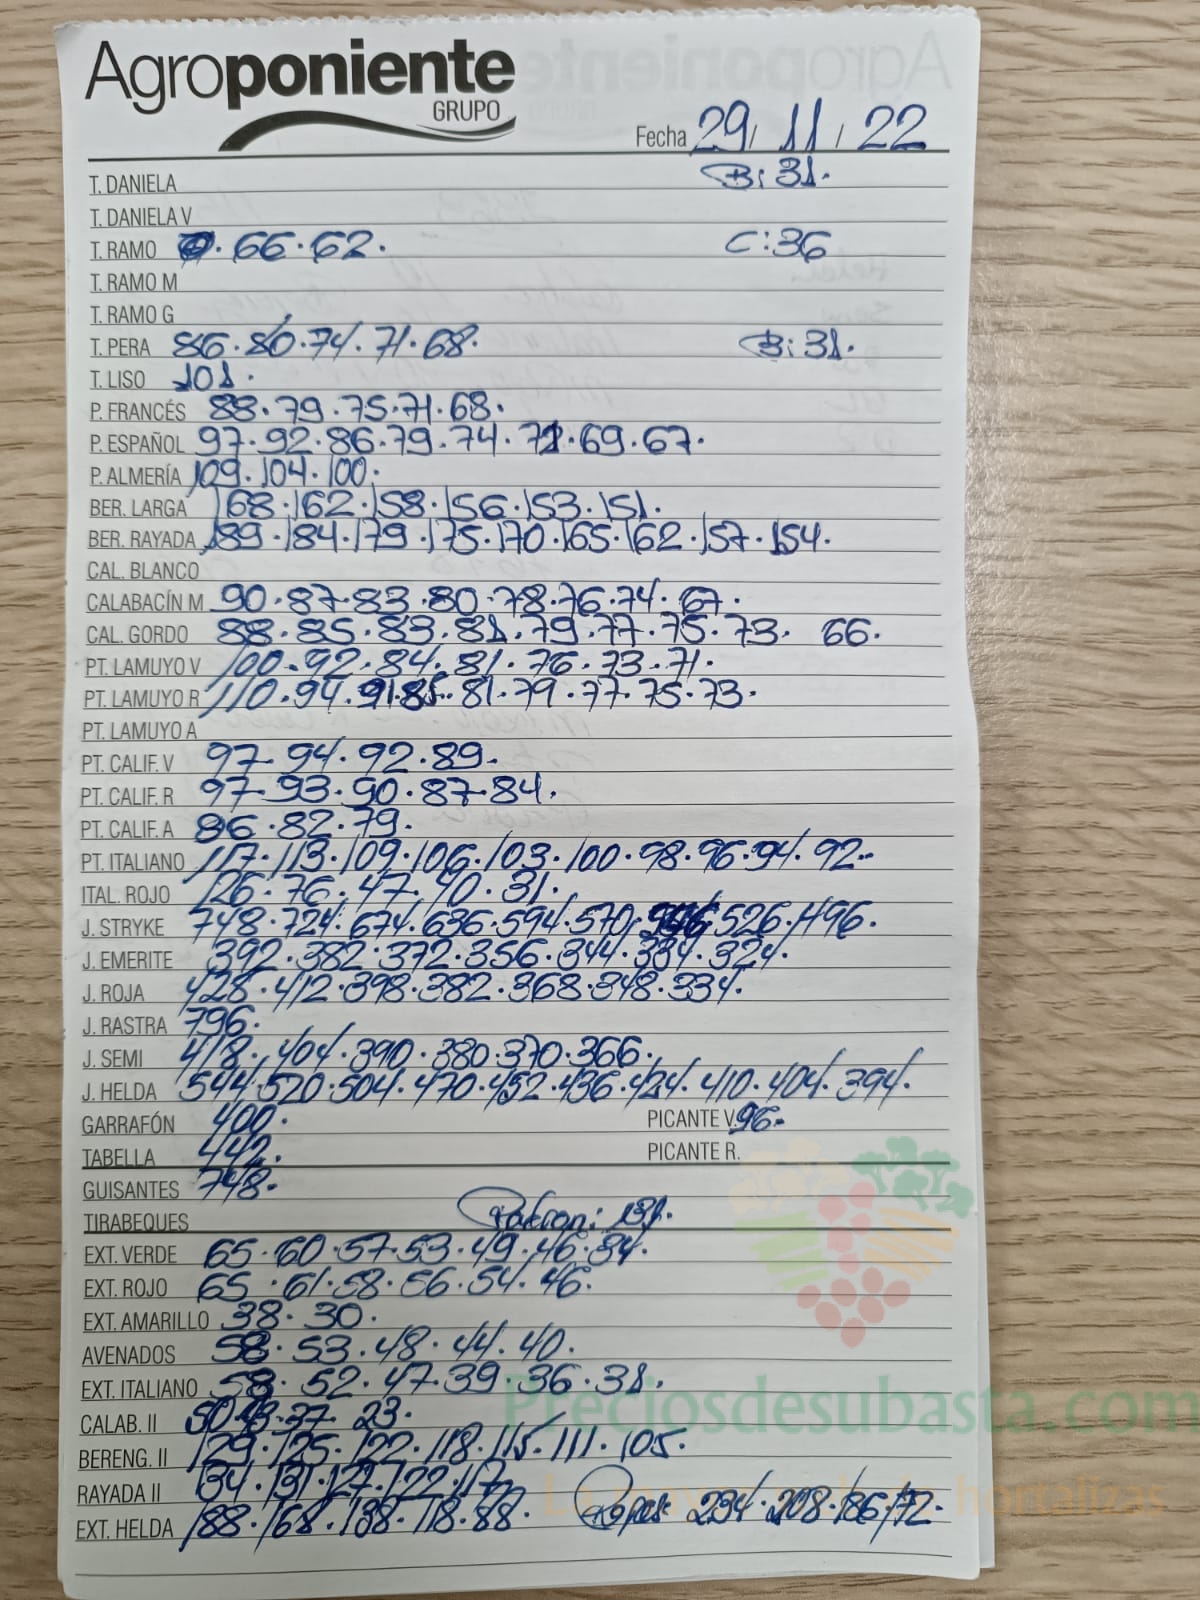 Agroponiente
GRUPO
Fecha 29/ 11 / 22
T. DANIELA B: 31.
T. DANIELA V
T. RAMO . 66 . 62 . C: 36
T. RAMO M
T. RAMO G
T. PERA 86 . 80 . 74 . 71 . 68 . B: 31.
T. LISO 101 .
P. FRANCÉS 88 . 79 . 75 . 71 . 68 .
P. ESPAÑOL 97 . 92 . 86 . 79 . 74 . 72 . 69 . 67 .
P. ALMERÍA 109 . 104 . 100 .
BER. LARGA 168 . 162 . 158 . 156 . 153 . 151 .
BER. RAYADA 189 . 184 . 179 . 175 . 170 . 165 . 162 . 157 . 154 .
CAL. BLANCO
CALABACÍN M 90 . 87 . 83 . 80 . 78 . 76 . 74 . 67 .
CAL. GORDO 88 . 85 . 83 . 81 . 79 . 77 . 75 . 73 . 66 .
PT. LAMUYO V 100 . 92 . 84 . 81 . 76 . 73 . 71 .
PT. LAMUYO R 110 . 94 . 91 . 85 . 81 . 79 . 77 . 75 . 73 .
PT. LAMUYO A
PT. CALIF. V 97 . 94 . 92 . 89 .
PT. CALIF. R 97 . 93 . 90 . 87 . 84 .
PT. CALIF. A 86 . 82 . 79 .
PT. ITALIANO 117 . 113 . 109 . 106 . 103 . 100 . 98 . 96 . 94 . 92 .
ITAL. ROJO 126 . 76 . 47 . 40 . 31 .
J. STRYKE 748 . 724 . 674 . 636 . 594 . 570 . 526 . 496 .
J. EMERITE 392 . 382 . 372 . 356 . 344 . 334 . 324 .
J. ROJA 428 . 412 . 398 . 382 . 368 . 348 . 334 .
J. RASTRA 796 .
J. SEMI 418 . 404 . 390 . 380 . 370 . 366 .
J. HELDA 544 . 520 . 504 . 470 . 452 . 436 . 424 . 410 . 404 . 394 .
GARRAFÓN 400 . PICANTE V. 96 .
TABELLA 442 . PICANTE R.
GUISANTES 748 .
TIRABEQUES Patron: 131 .
EXT. VERDE 65 . 60 . 57 . 53 . 49 . 46 . 34 .
EXT. ROJO 65 . 61 . 58 . 56 . 54 . 46 .
EXT. AMARILLO 38 . 30 .
AVENADOS 58 . 53 . 48 . 44 . 40 .
EXT. ITALIANO 58 . 52 . 47 . 39 . 36 . 31 .
Preciosdesubasta.com
CALAB. II 50 . 43 . 37 . 23 .
BERENG. II 129 . 125 . 122 . 118 . 115 . 111 . 105 .
RAYADA II 134 . 131 . 127 . 122 . 117 .
hortalizas
EXT. HELDA 188 . 168 . 138 . 118 . 88 . 234 . 208 . 186 . 172 .